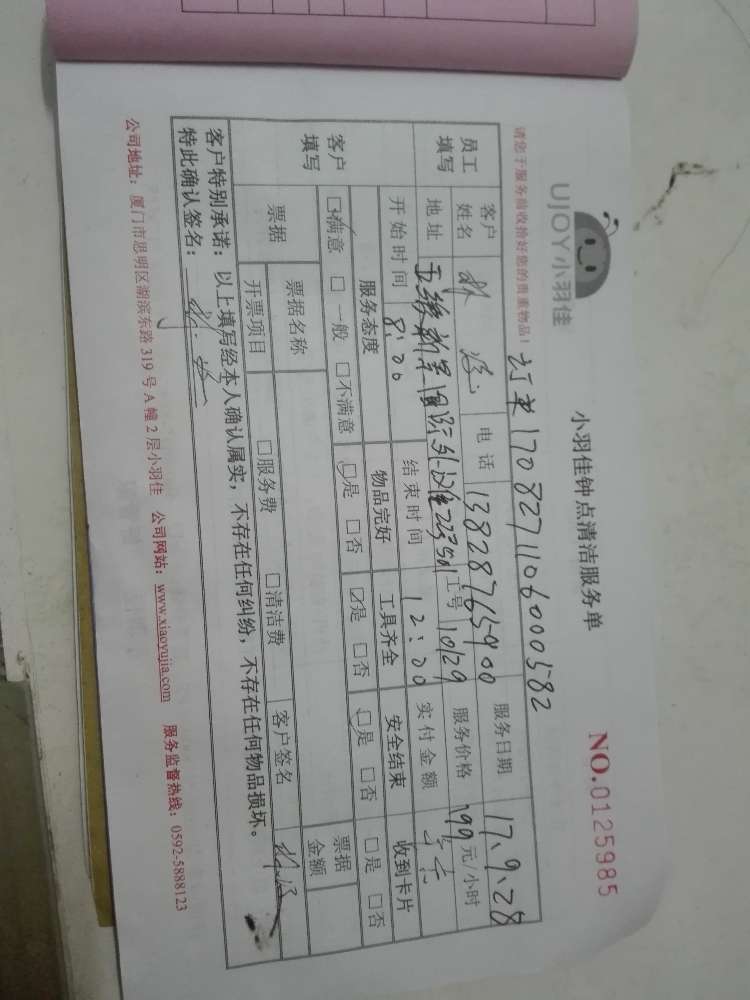 UJOY小羽佳
小羽佳钟点清洁服务单
NO.0125985
请您于服务前收拾好您的贵重物品!
订单17082711060000582
员工填写
客户姓名 林 电话 13828765900 服务日期 17.9.28
地址 新景国际 工号 1029 服务价格 199 元/小时
开始时间 8:00 结束时间 12:00 实付金额
客户填写
服务态度 物品完好 工具齐全 安全结束 收到卡片
☑满意 □一般 □不满意 ☑是 □否 ☑是 □否 ☑是 □否 □是 □否
票据 票据名称 票据金额
开票项目 □服务费 □清洁费 客户签名
客户特别承诺:以上填写经本人确认属实,不存在任何纠纷,不存在任何物品损坏。
特此确认签名:
公司地址:厦门市思明区湖滨东路 319 号 A 幢 2 层小羽佳 公司网站:www.xiaoyujia.com 服务监督热线:0592-5888123